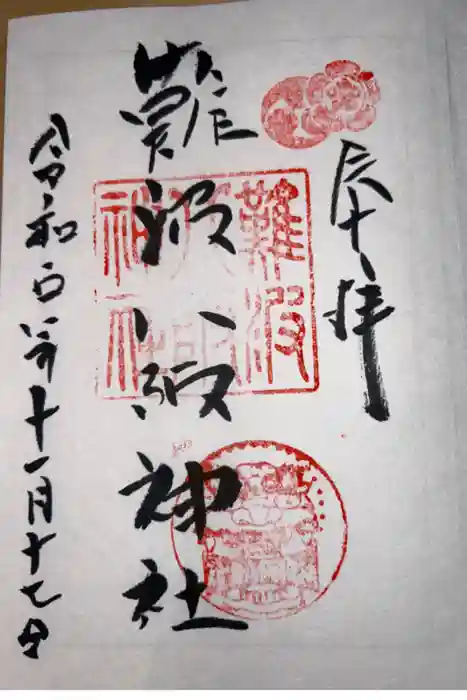 奉拝
難波八阪神社
難波
八阪
神社
令和六年十一月十七日